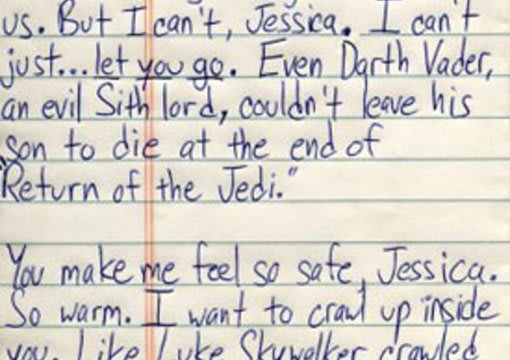 us. But I can't, Jessica. I can't
just...let you go. Even Darth Vader,
an evil Sith lord, couldn't leave his
son to die at the end of
"Return of the Jedi."
You make me feel so safe, Jessica.
So warm. I want to crawl up inside
you. Like Luke Skywalker crawled